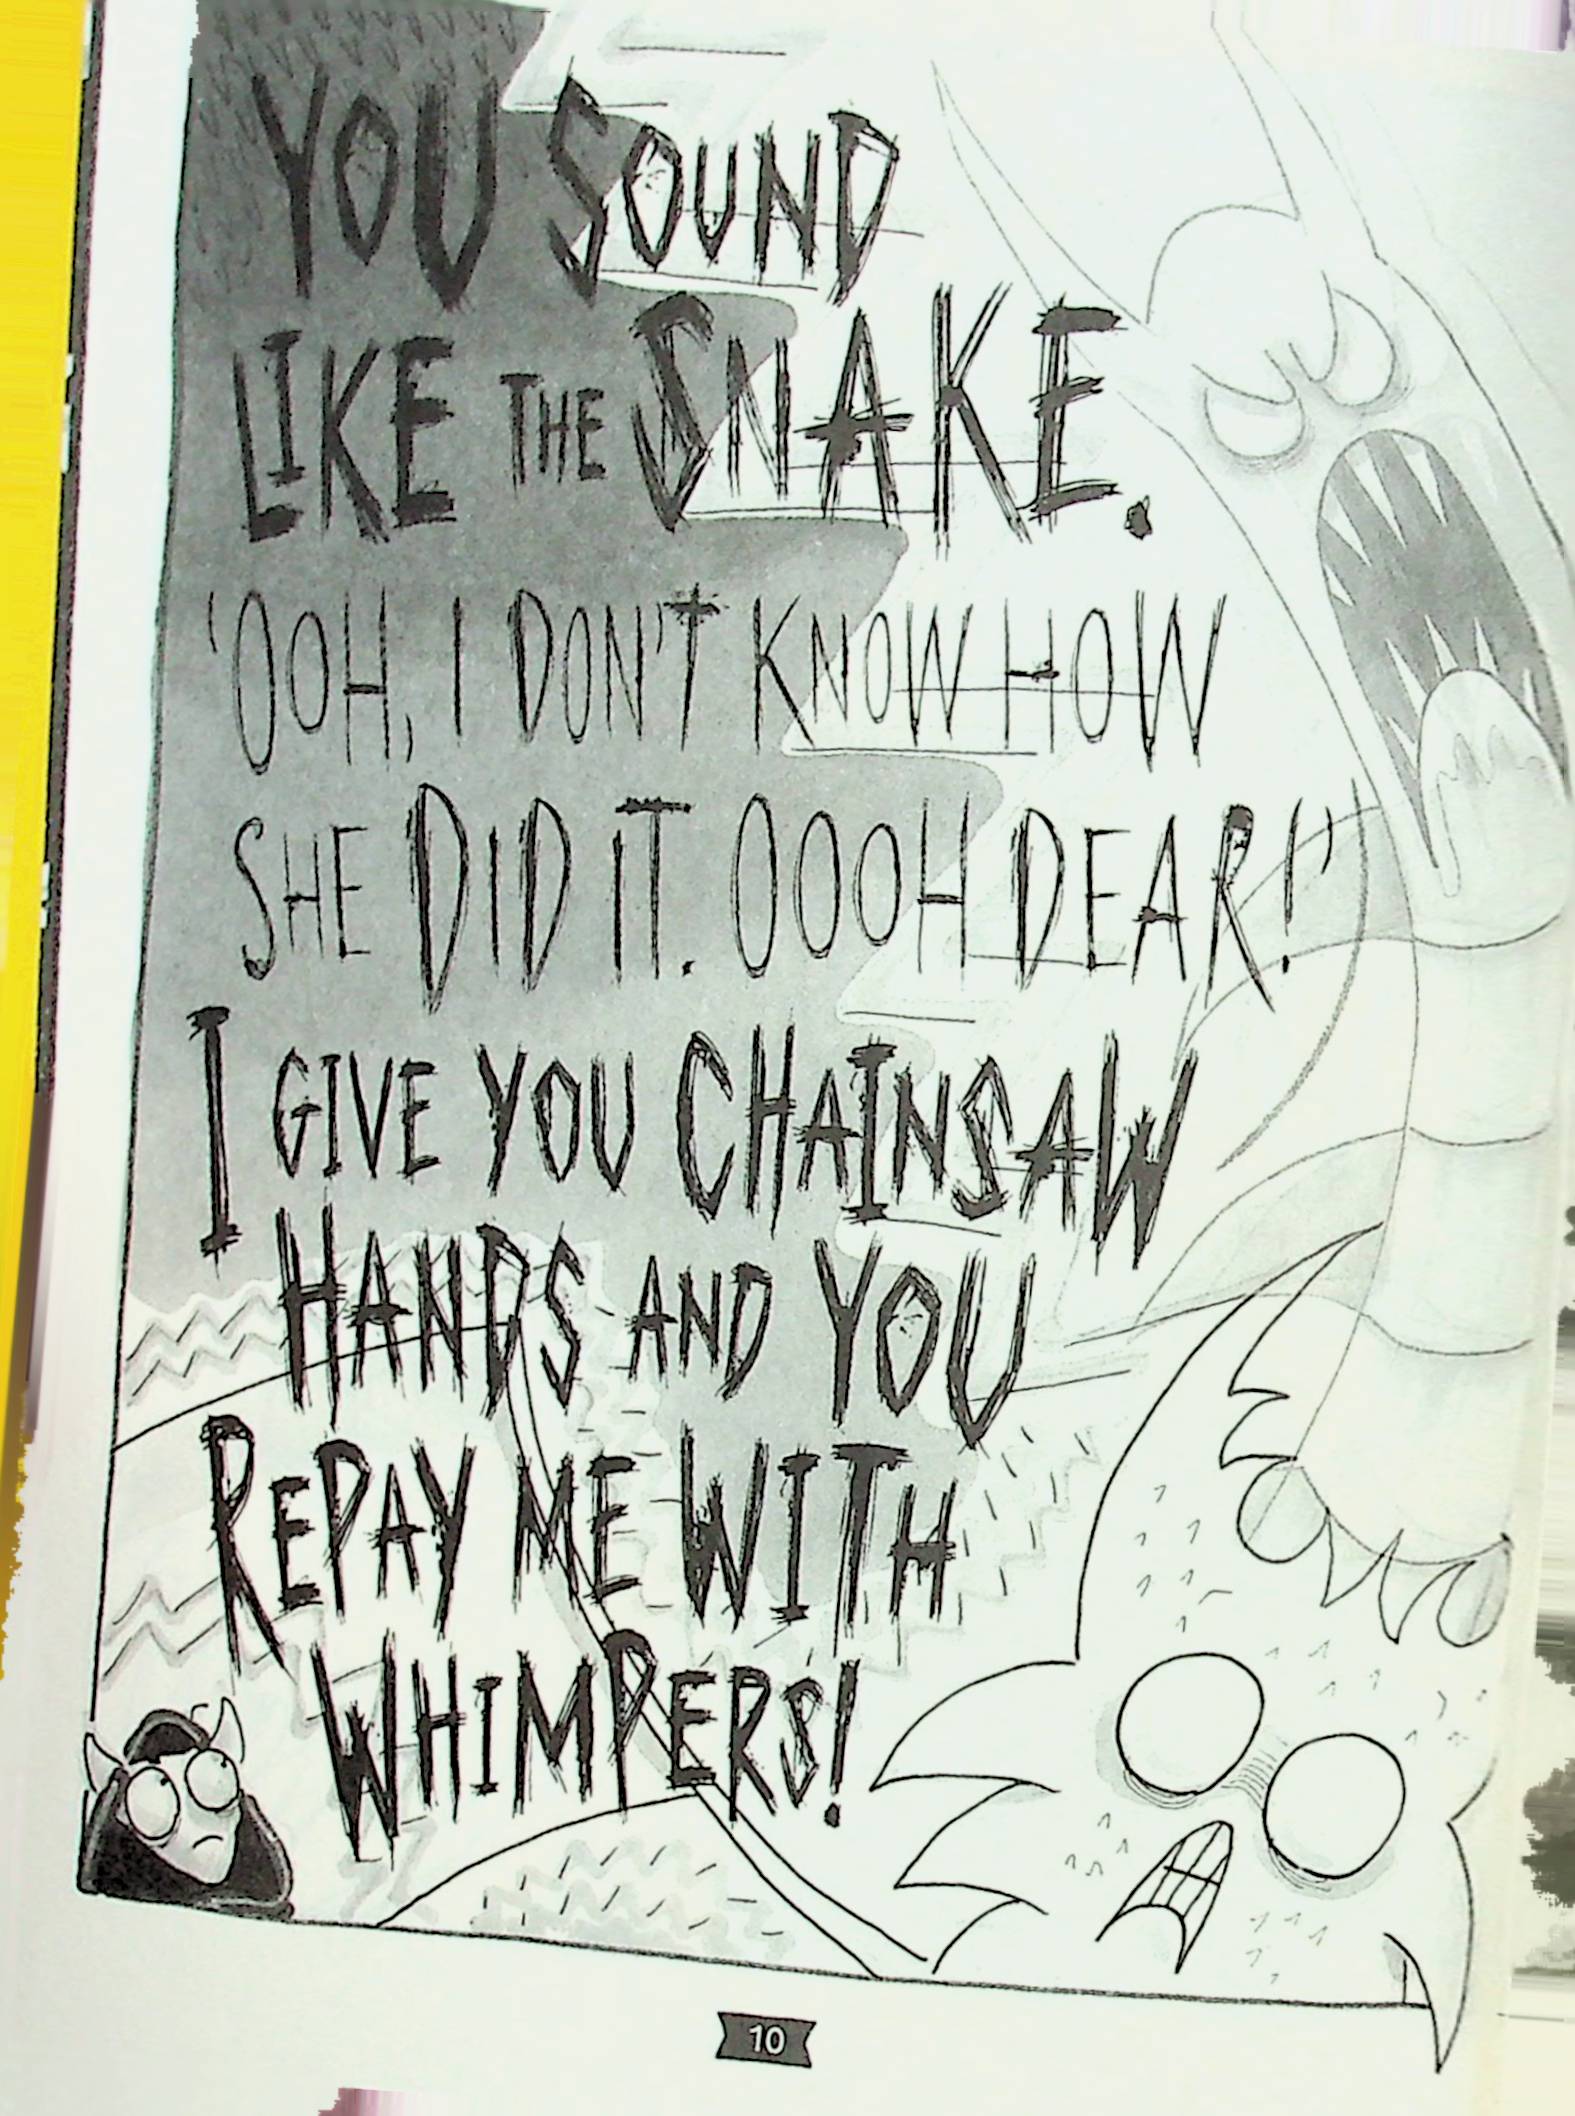 YOU SOUND
LIKE THE SNAKE.
'OOH, I DON'T KNOW HOW
SHE DID IT. OOOH DEAR!'
I GIVE YOU CHAINSAW
HANDS AND YOU
REPAY ME WITH
WHIMPERS!
10